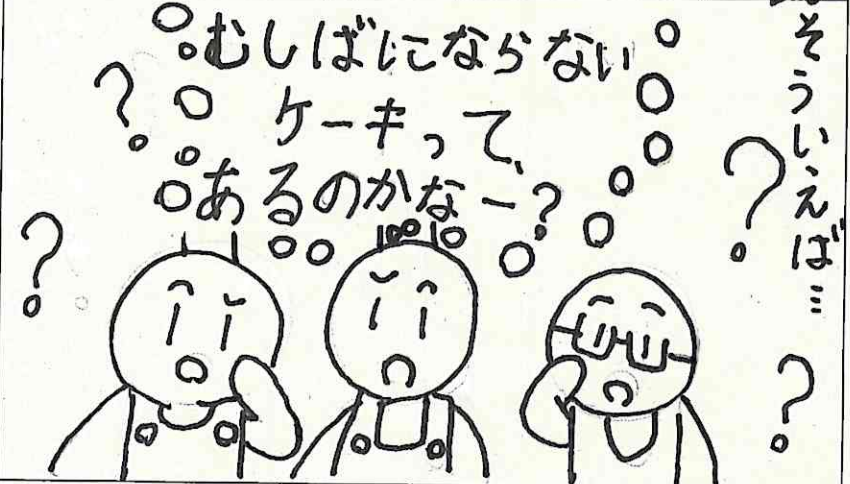 そういえば…
むしばにならない
ケーキって、
あるのかなー?
?
?
?
?